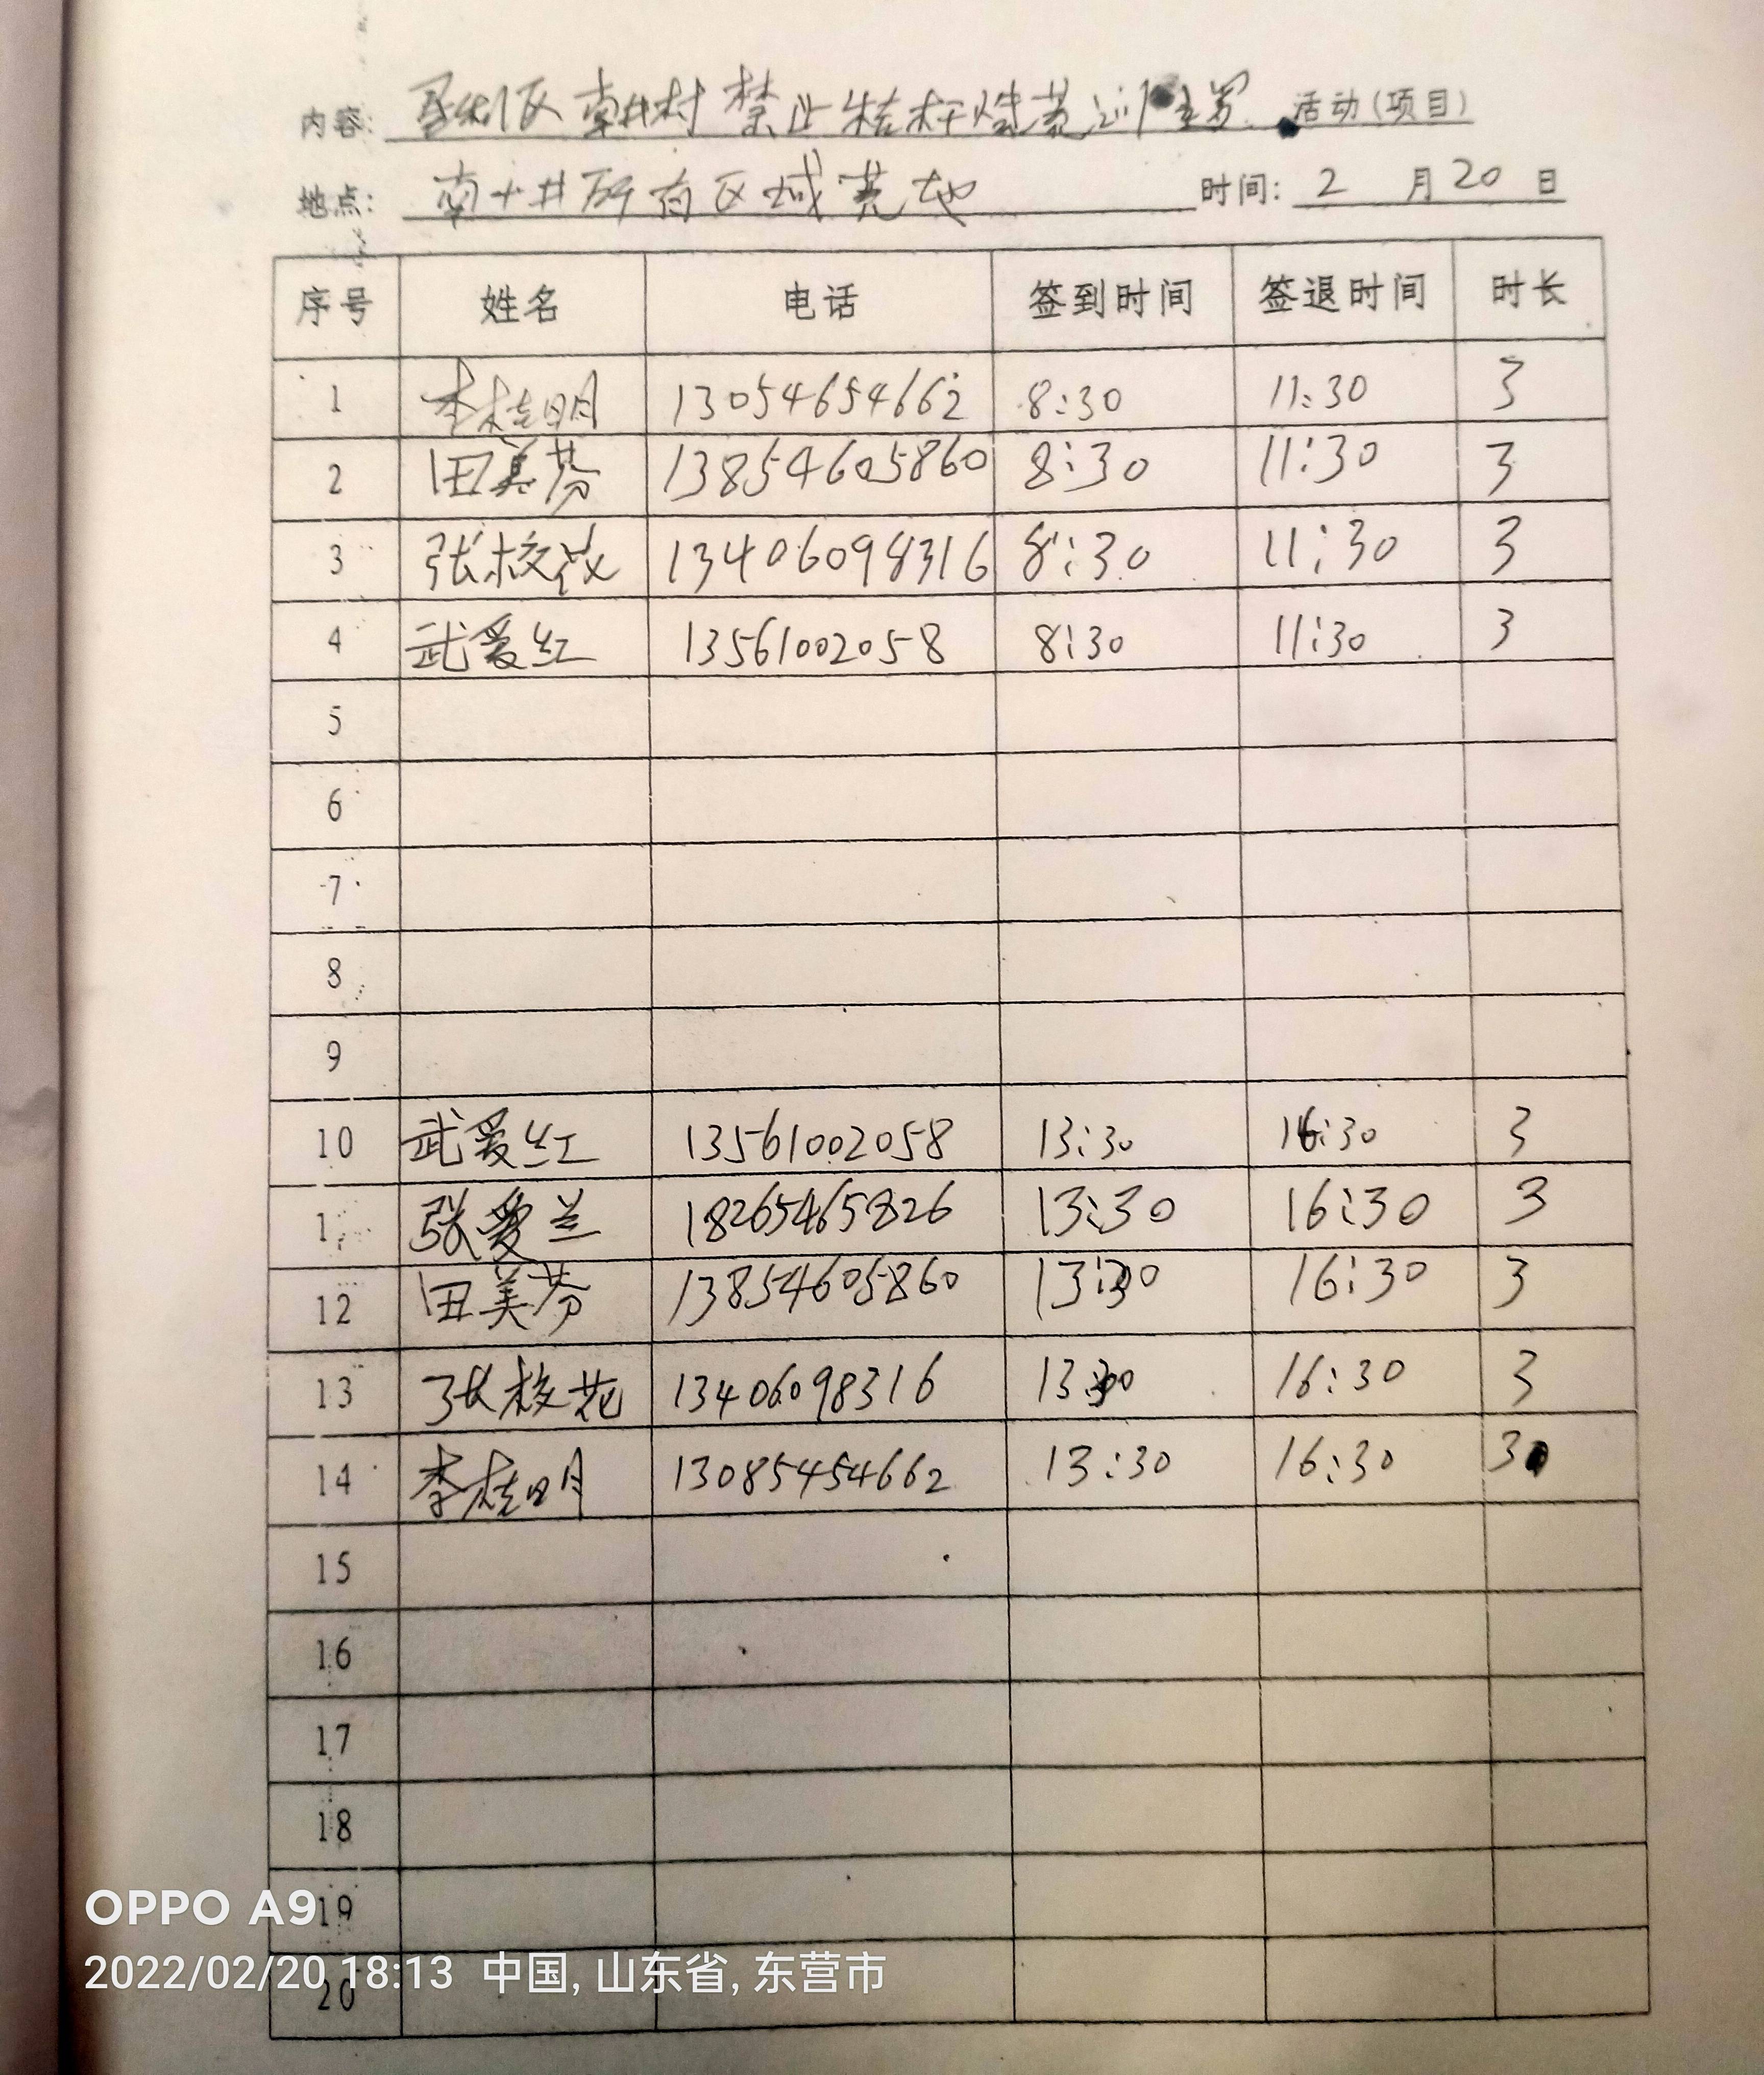 内容: 垦利区南井村禁止秸秆烧荒巡 活动(项目)
地点: 南十井所有区域荒地 时间: 2 月 20 日
序号 姓名 电话 签到时间 签退时间 时长
1 李桂明 13054654662 8:30 11:30 3
2 田美芬 13854605860 8:30 11:30 3
3 张校花 13406098316 8:30 11:30 3
4 武爱红 13561002058 8:30 11:30 3
5
6
7
8
9
10 武爱红 13561002058 13:30 16:30 3
1 张爱兰 18265465826 13:30 16:30 3
12 田美芬 13854605860 13:30 16:30 3
13 张校花 13406098316 13:30 16:30 3
14 李桂明 13085454662 13:30 16:30 3
15
16
17
18
19
20
OPPO A9
2022/02/20 18:13 中国, 山东省, 东营市